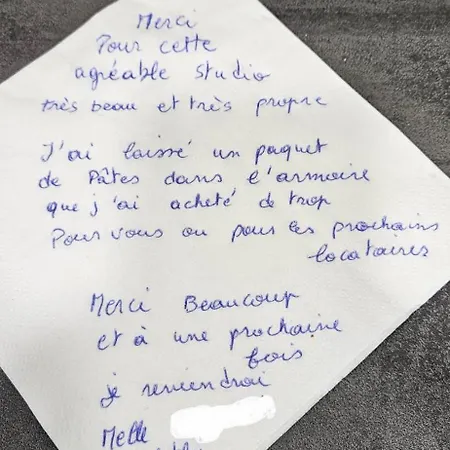 Merci
Pour cette
agréable studio
très beau et très propre
J'ai laissé un paquet
de Pâtes dans l'armoire
que j'ai acheté de trop
Pour vous ou pour les prochains
locataires
Merci Beaucoup
et à une prochaine
fois
je reviendrai
Melle